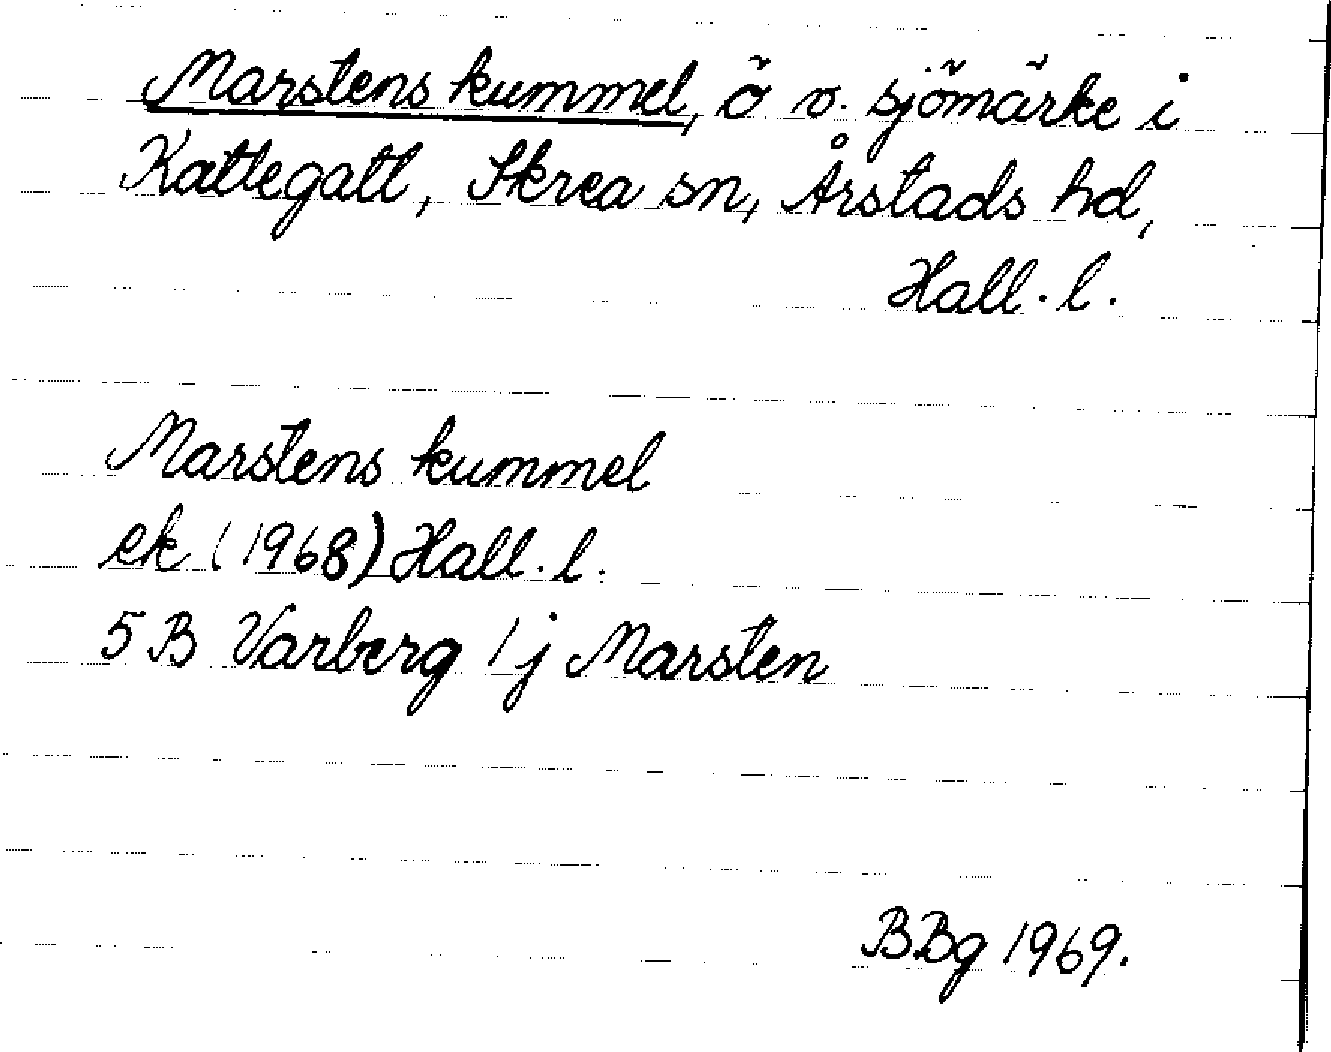 Marstens kummel, ö o. sjömärke i
Kattegatt, Skrea sn, Årstads hd,
Hall. l.
Marstens kummel
ek (1968) Hall. l.
5 B Varberg 1j Marsten
BBg 1969.